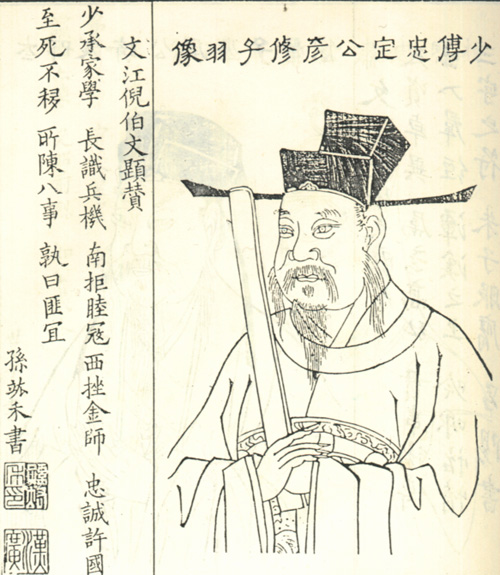 少傅忠定公彥修子羽像
文江倪伯文顕贊
少承家學 長識兵機 南拒睦冦 西挫金師 忠誠許國
至死不移 所陳八事 孰曰匪冝
孫 禾書
漢廣